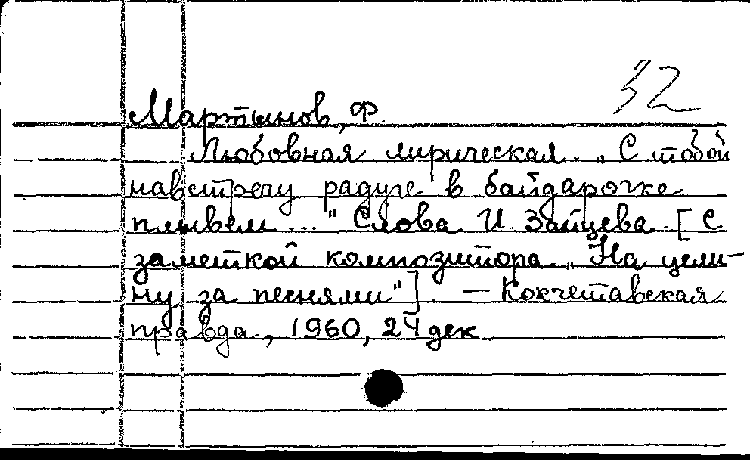 32
Мартынов, Ф.
Любовная лирическая. „С тобой
навстречу радуге в байдарочке
плывем ..." Слова И. Зайцева. [С
заметкой композитора „На цели-
ну за песнями"]. — Кокчетавская
правда, 1960, 24 дек